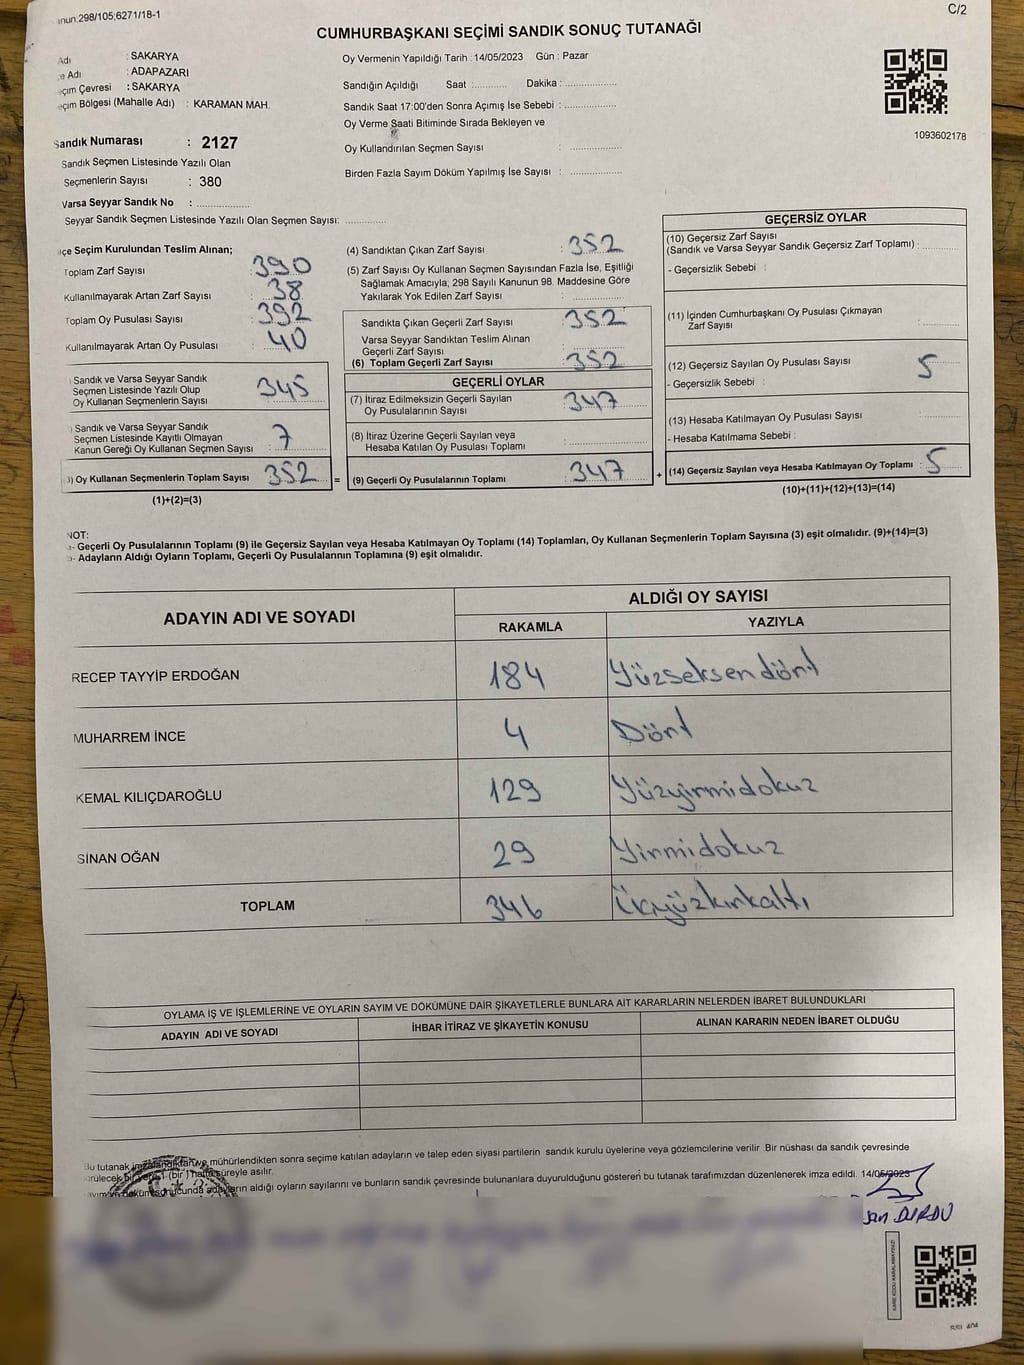 anun:298/105;6271/18-1
C/2
CUMHURBAŞKANI SEÇİMİ SANDIK SONUÇ TUTANAĞI
Adı : SAKARYA
e Adı : ADAPAZARI
eçim Çevresi : SAKARYA
eçim Bölgesi (Mahalle Adı) : KARAMAN MAH.
Sandık Numarası : 2127
Sandık Seçmen Listesinde Yazılı Olan
Seçmenlerin Sayısı : 380
Varsa Seyyar Sandık No : ..................
Seyyar Sandık Seçmen Listesinde Yazılı Olan Seçmen Sayısı: ..............
Oy Vermenin Yapıldığı Tarih : 14/05/2023 Gün : Pazar
Sandığın Açıldığı Saat :............ Dakika : ..................
Sandık Saat 17:00'den Sonra Açımış İse Sebebi : ....................
Oy Verme Saati Bitiminde Sırada Bekleyen ve
Oy Kullandırılan Seçmen Sayısı : ..................
Birden Fazla Sayım Döküm Yapılmış İse Sayısı : ..................
1093602178
lçe Seçim Kurulundan Teslim Alınan;
Toplam Zarf Sayısı : 390
Kullanılmayarak Artan Zarf Sayısı : 38
Toplam Oy Pusulası Sayısı : 392
Kullanılmayarak Artan Oy Pusulası : 40
) Sandık ve Varsa Seyyar Sandık
Seçmen Listesinde Yazılı Olup
Oy Kullanan Seçmenlerin Sayısı : 345
) Sandık ve Varsa Seyyar Sandık
Seçmen Listesinde Kayıtlı Olmayan
Kanun Gereği Oy Kullanan Seçmen Sayısı : 7
3) Oy Kullanan Seçmenlerin Toplam Sayısı : 352 =
(1)+(2)=(3)
(4) Sandıktan Çıkan Zarf Sayısı : 352
(5) Zarf Sayısı Oy Kullanan Seçmen Sayısından Fazla İse, Eşitliği
Sağlamak Amacıyla; 298 Sayılı Kanunun 98. Maddesine Göre
Yakılarak Yok Edilen Zarf Sayısı : ..................
Sandıkta Çıkan Geçerli Zarf Sayısı : 352
Varsa Seyyar Sandıktan Teslim Alınan
Geçerli Zarf Sayısı
(6) Toplam Geçerli Zarf Sayısı : 352
GEÇERLİ OYLAR
(7) İtiraz Edilmeksizin Geçerli Sayılan
Oy Pusulalarının Sayısı : 347
(8) İtiraz Üzerine Geçerli Sayılan veya
Hesaba Katılan Oy Pusulası Toplamı : ..................
(9) Geçerli Oy Pusulalarının Toplamı : 347 +
GEÇERSİZ OYLAR
(10) Geçersiz Zarf Sayısı
(Sandık ve Varsa Seyyar Sandık Geçersiz Zarf Toplamı) : ............
- Geçersizlik Sebebi :
(11) İçinden Cumhurbaşkanı Oy Pusulası Çıkmayan
Zarf Sayısı : ............
(12) Geçersiz Sayılan Oy Pusulası Sayısı : 5
- Geçersizlik Sebebi :
(13) Hesaba Katılmayan Oy Pusulası Sayısı : ............
- Hesaba Katılmama Sebebi :
(14) Geçersiz Sayılan veya Hesaba Katılmayan Oy Toplamı : 5
(10)+(11)+(12)+(13)=(14)
NOT:
a- Geçerli Oy Pusulalarının Toplamı (9) ile Geçersiz Sayılan veya Hesaba Katılmayan Oy Toplamı (14) Toplamları, Oy Kullanan Seçmenlerin Toplam Sayısına (3) eşit olmalıdır. (9)+(14)=(3)
b- Adayların Aldığı Oyların Toplamı, Geçerli Oy Pusulalarının Toplamına (9) eşit olmalıdır.
ADAYIN ADI VE SOYADI
ALDIĞI OY SAYISI
RAKAMLA YAZIYLA
RECEP TAYYİP ERDOĞAN 184 Yüzseksendört
MUHARREM İNCE 4 Dört
KEMAL KILIÇDAROĞLU 129 Yüzyirmidokuz
SİNAN OĞAN 29 Yirmidokuz
TOPLAM 346 Üçyüzkırkaltı
OYLAMA İŞ VE İŞLEMLERİNE VE OYLARIN SAYIM VE DÖKÜMÜNE DAİR ŞİKAYETLERLE BUNLARA AİT KARARLARIN NELERDEN İBARET BULUNDUKLARI
ADAYIN ADI VE SOYADI İHBAR İTİRAZ VE ŞİKAYETİN KONUSU ALINAN KARARIN NEDEN İBARET OLDUĞU
Bu tutanak imzalandıktan ve mühürlendikten sonra seçime katılan adayların ve talep eden siyasi partilerin sandık kurulu üyelerine veya gözlemcilerine verilir. Bir nüshası da sandık çevresinde
görülecek bir yere 1 (bir) hafta süreyle asılır.
ayım ve döküm sonucunda adayların aldığı oyların sayılarını ve bunların sandık çevresinde bulunanlara duyurulduğunu gösteren bu tutanak tarafımızdan düzenlenerek imza edildi. 14/05/2023
KARE KODU KARALAMAYINIZ!